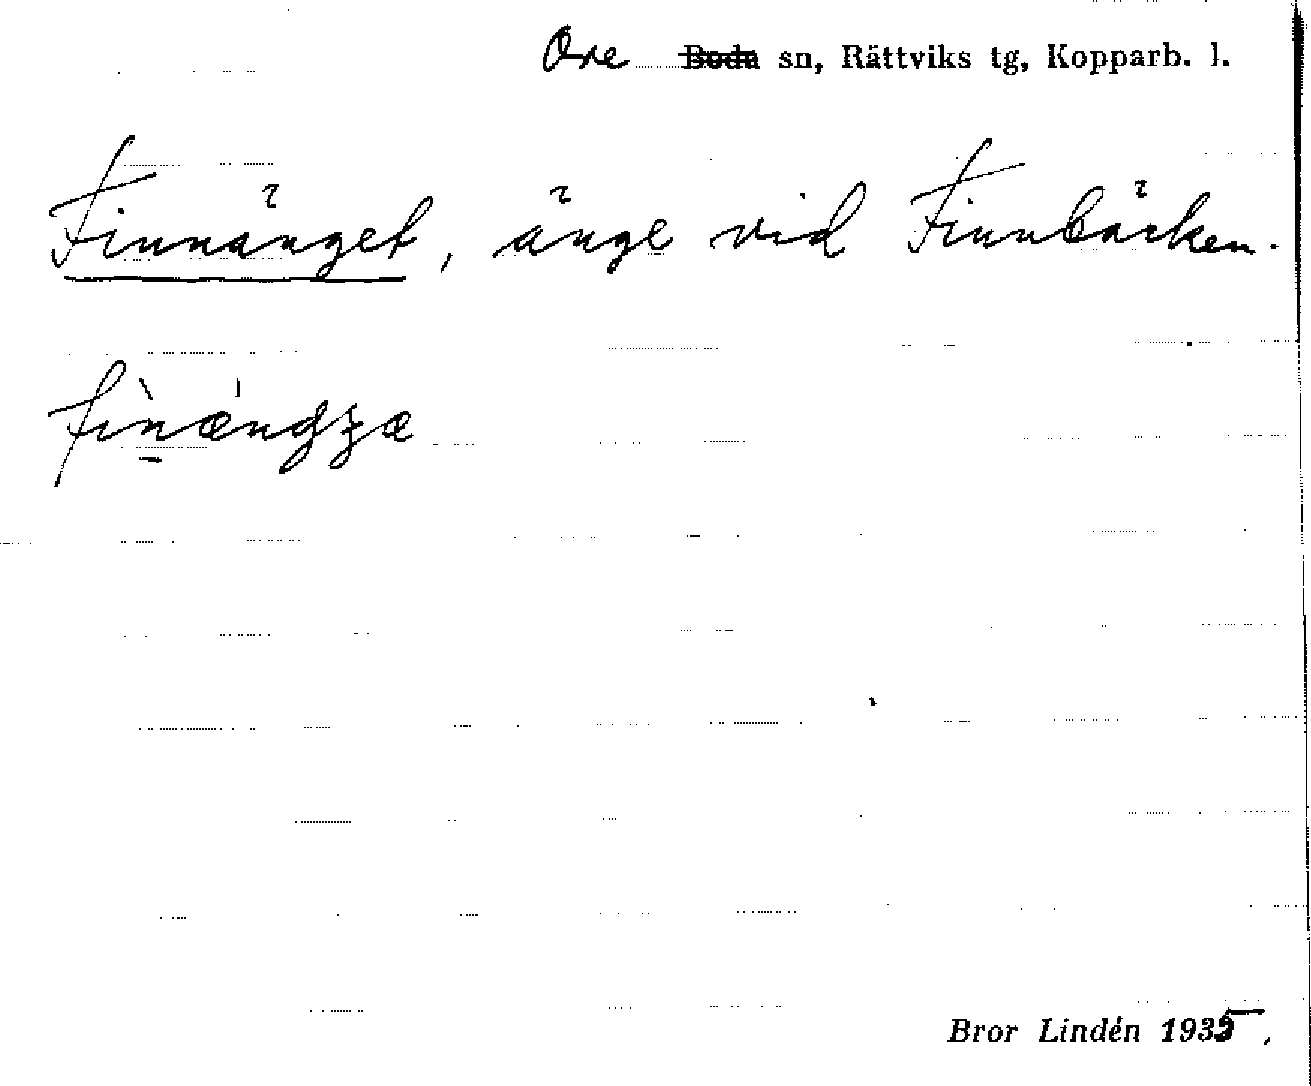 Ore Boda sn, Rättviks tg, Kopparb. l.
Finnänget, änge vid Finnbäcken.
Bror Lindén 1935.